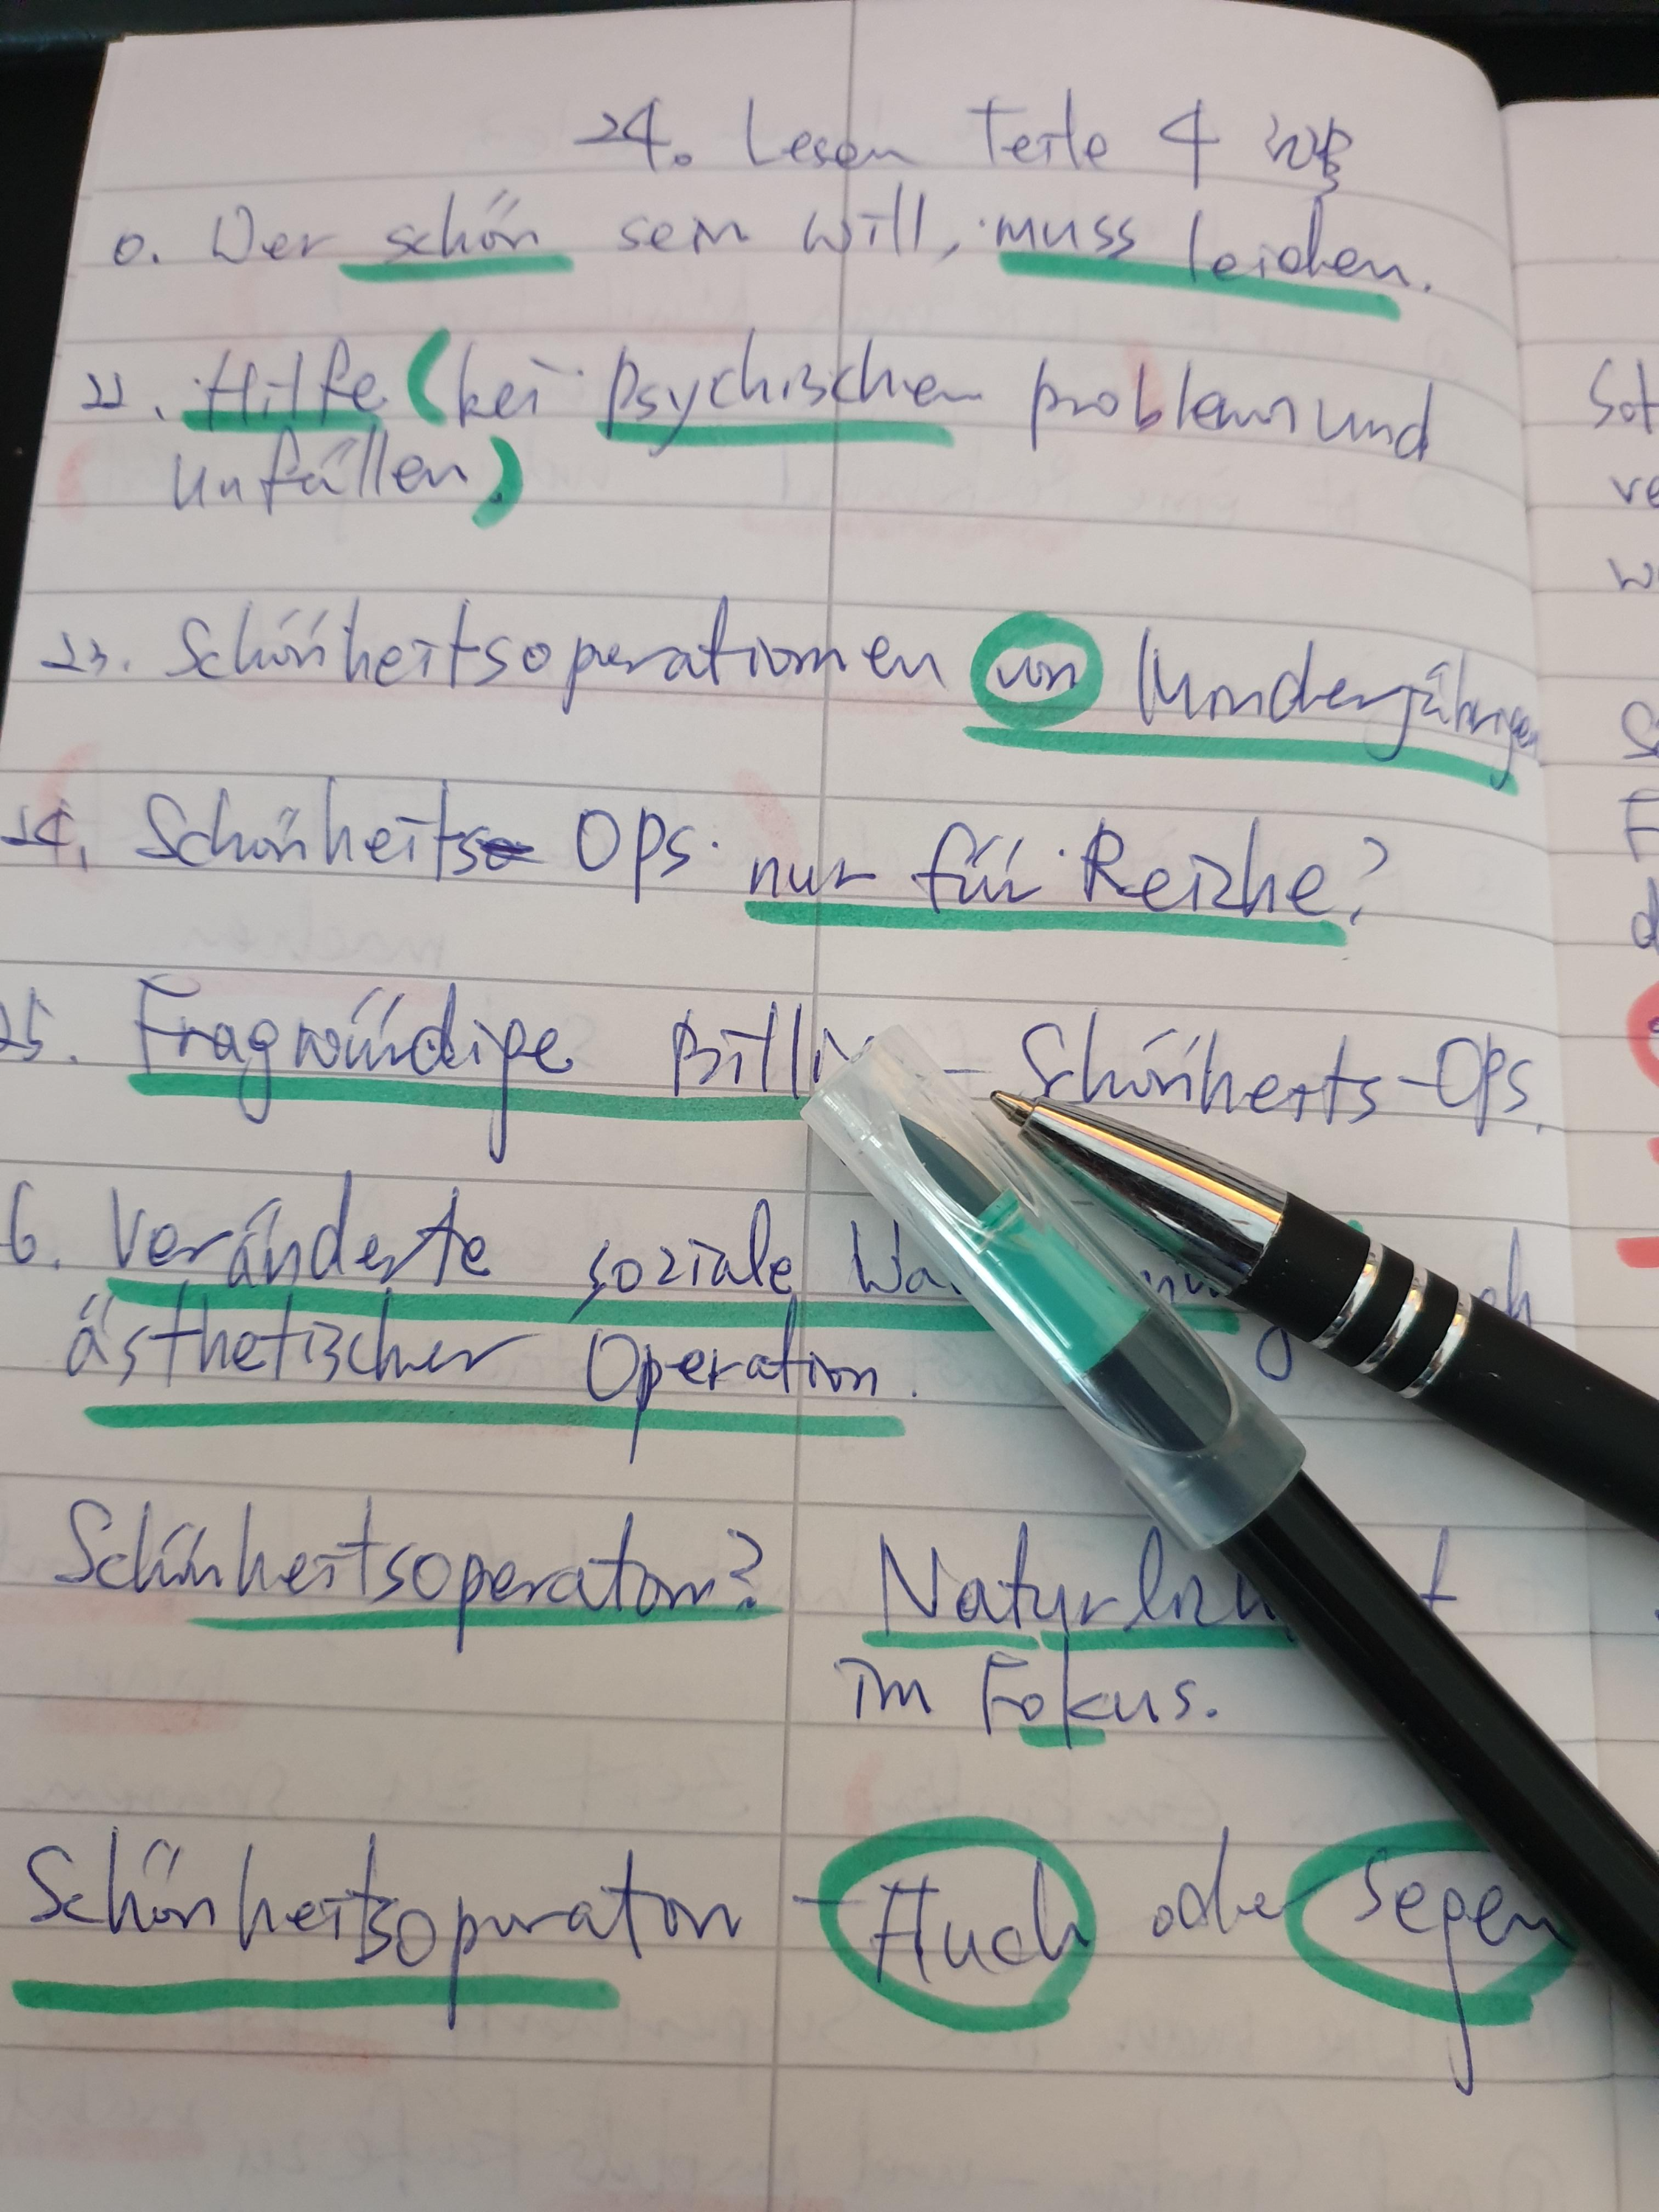 24. Lesen Teile 4
0. Wer schön sein will, muss leiden.
22. Hilfe (bei psychischen problemen und
unfällen)
23. Schönheitsoperationen von Minderjährigen
24. Schönheits Ops nur für Reiche?
25. Fragwürdige Billi - Schönheits-Ops.
6. Veränderte soziale
ästhetischer Operation.
Schönheitsoperaton? Natürli
im Fokus.
Schönheitsoperaton - Fluch oder Segen